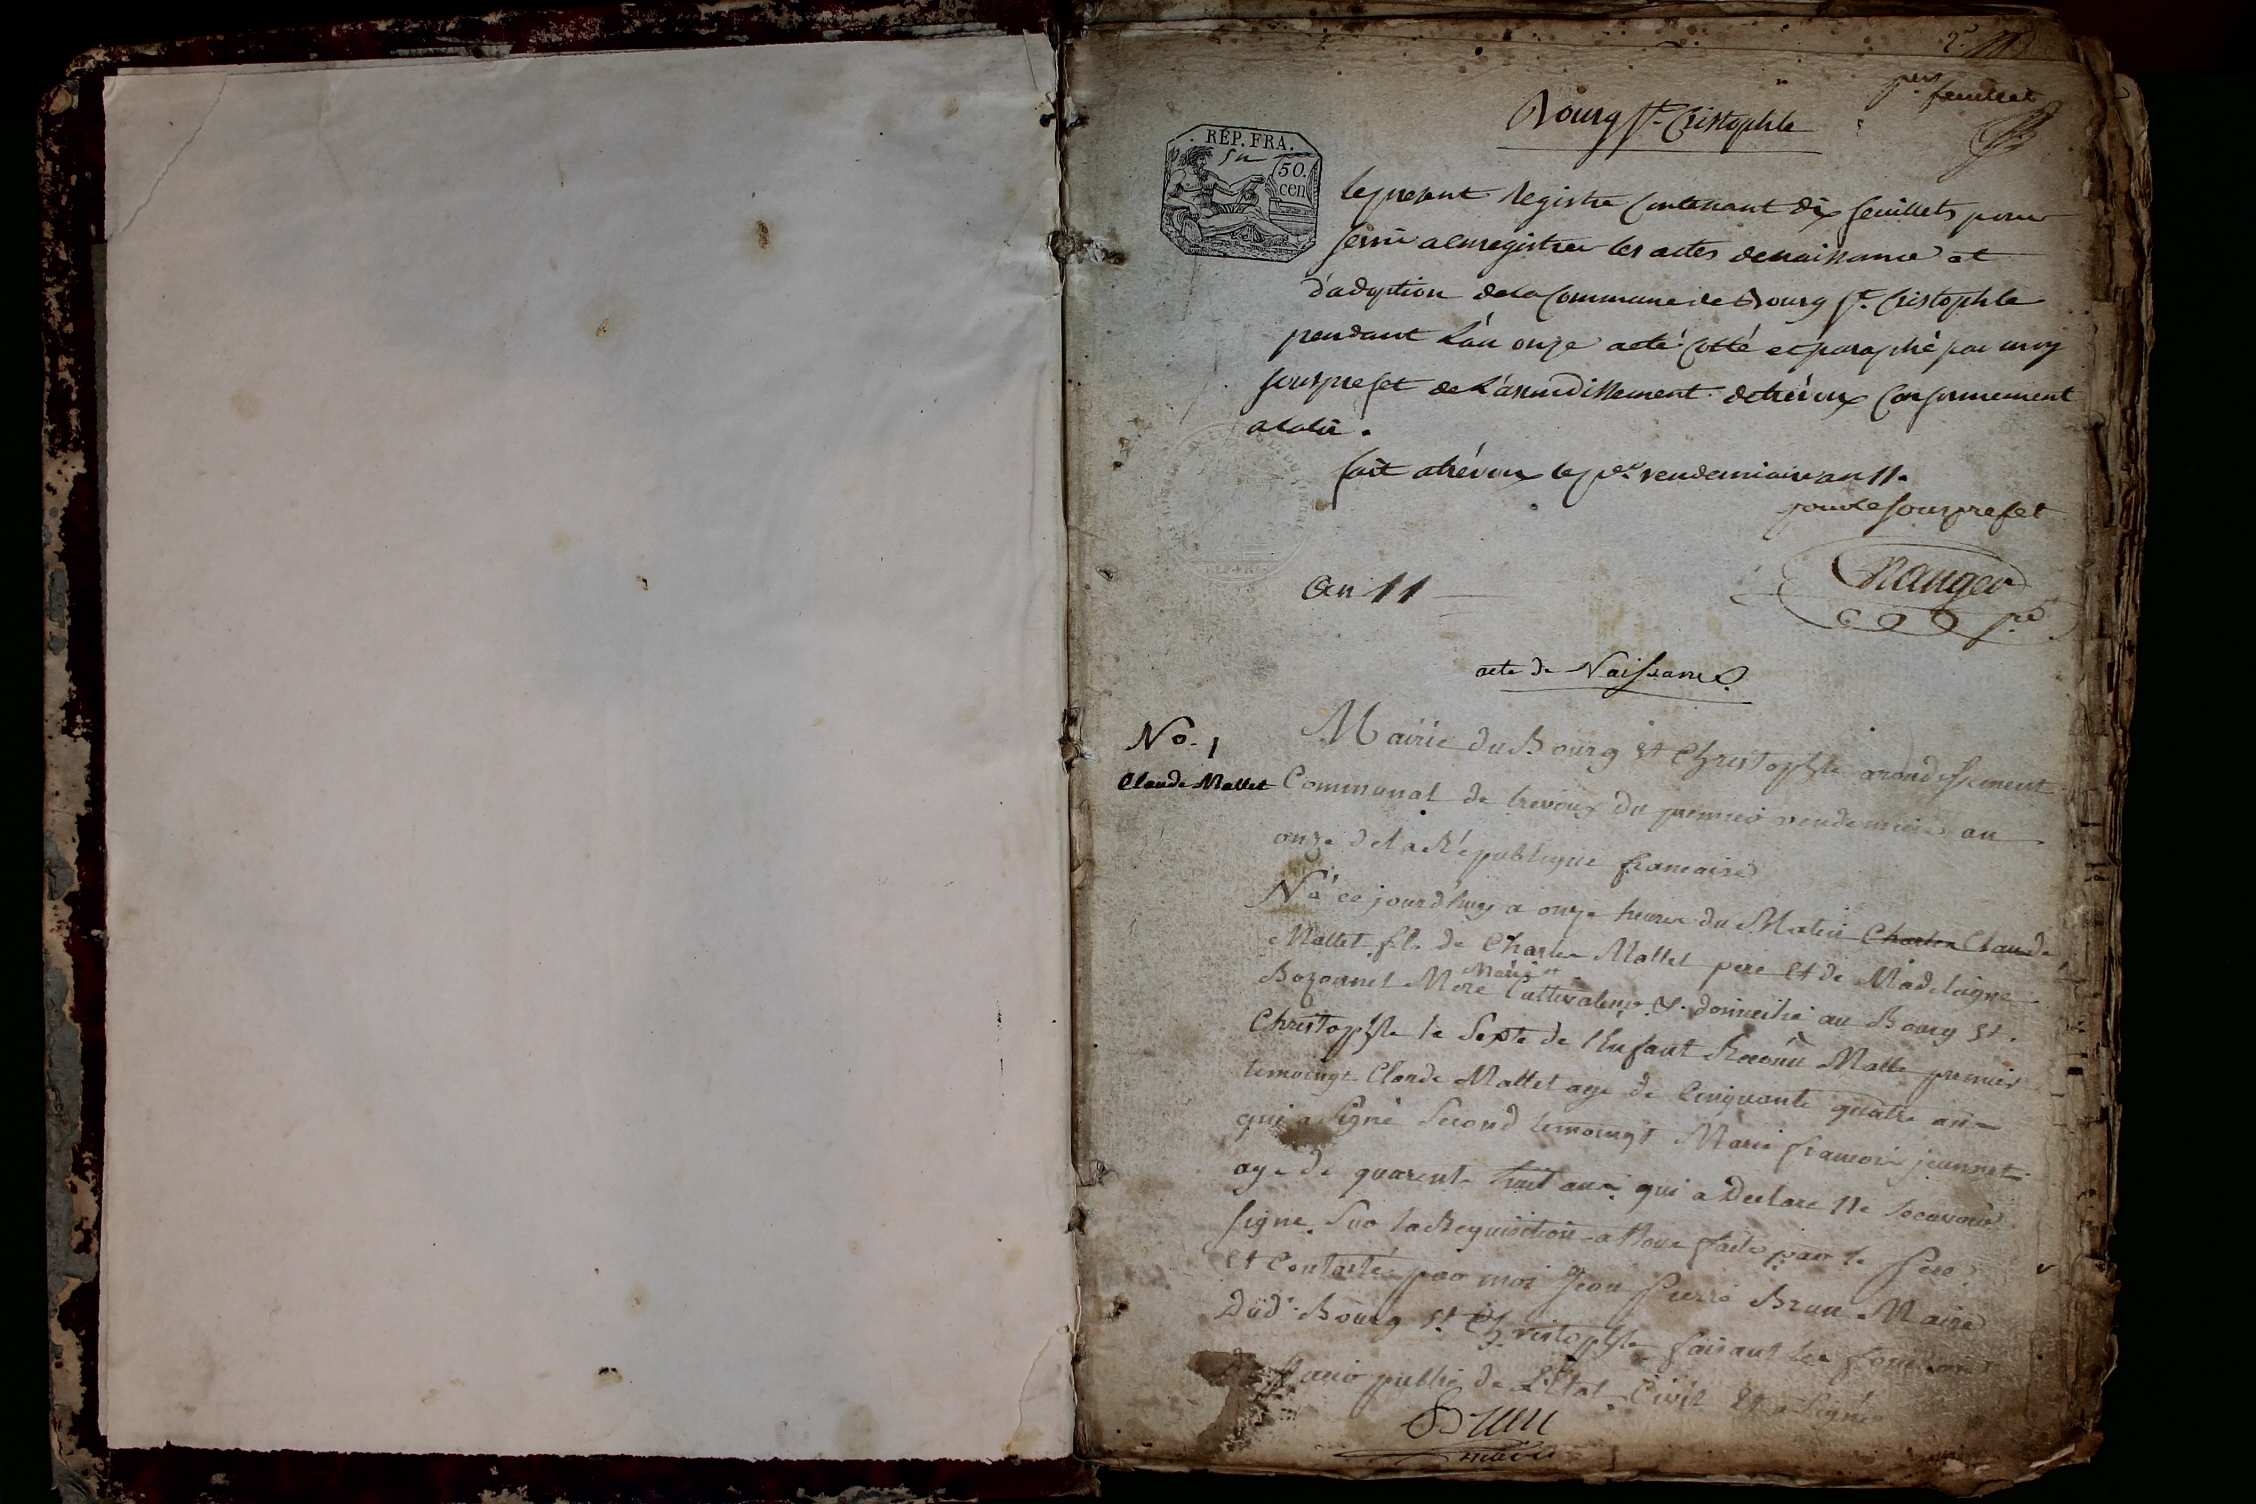 per feuillet
Bourg St. Cristophle
RÉP. FRA.
50.
cen
le present Registre Contenant dix feuillets pour
servir a enregistrer les actes de naissance et
d'adoption de la Commune de Bourg St. Cristophle
pendant L'án onze acté Cotté et paraphé par moy
souspréfet de L'arrondissement de trévoux Conformement
a la loi.
fait a trévoux le per vendemiaire an 11.
pour le sousprefet
An 11
acte de Naissance
No. 1
Claude Mallet
Mairie du Bourg St Christophle arondissement
Communal de trevoux du premier vendemiaire an
onze de la République francaise
Né ce jourd'huy a onze heures du Matin Charles Claude
Mallet fils de Charles Mallet pere et de Madelaigne
Bozonnet Mere Mariés et Cultivateurs & domicilié au Bourg St.
Christophle le Sexte de l'Enfant Reconu Malle premier
temoingt Claude Mallet age de Cinquante quatre ans
qui a Signé Second temoingt Marie francoise jeannet
age de quarente huit ans qui a Declare Ne Scavoir
signe Sur la Requisition a Nous faite par le Pere
Et Constaté par moi Jean Pierre Brun Maire
Dud. Bourg St. Christophle faisant les fonctions
public de L'Etat Civil Et a Signé
Brun
maire